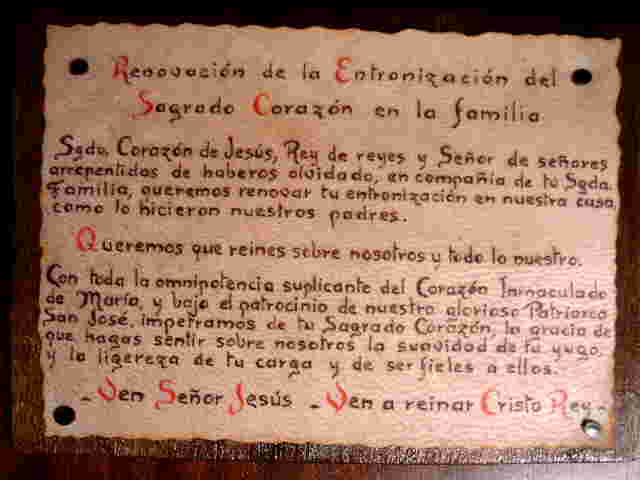 Renovación de la Entronización del
Sagrado Corazón en la familia
Sgdo. Corazón de Jesús, Rey de reyes y Señor de señores
arrepentidos de haberos olvidado, en compañía de tu Sgda.
Familia, queremos renovar tu entronización en nuestra casa,
como lo hicieron nuestros padres.
Queremos que reines sobre nosotros y todo lo nuestro.
Con toda la omnipotencia suplicante del Corazón Inmaculado
de María, y bajo el patrocinio de nuestro glorioso Patriarca
San José, impetramos de tu Sagrado Corazón, la gracia de
que hagas sentir sobre nosotros la suavidad de tu yugo
y la ligereza de tu carga y de ser fieles a ellos.
- Ven Señor Jesús - Ven a reinar Cristo Rey -